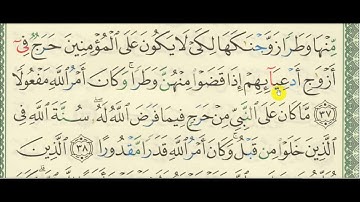 مِّنْهَا وَطَرًا زَوَّجْنَٰكَهَا لِكَىْ لَا يَكُونَ عَلَى ٱلْمُؤْمِنِينَ حَرَجٌ فِىٓ
أَزْوَٰجِ أَدْعِيَآئِهِمْ إِذَا قَضَوْا۟ مِنْهُنَّ وَطَرًا ۚ وَكَانَ أَمْرُ ٱللَّهِ مَفْعُولًا
٣٧ مَّا كَانَ عَلَى ٱلنَّبِىِّ مِنْ حَرَجٍ فِيمَا فَرَضَ ٱللَّهُ لَهُۥ ۖ سُنَّةَ ٱللَّهِ فِى
ٱلَّذِينَ خَلَوْا۟ مِن قَبْلُ ۚ وَكَانَ أَمْرُ ٱللَّهِ قَدَرًا مَّقْدُورًا ٣٨ ٱلَّذِينَ